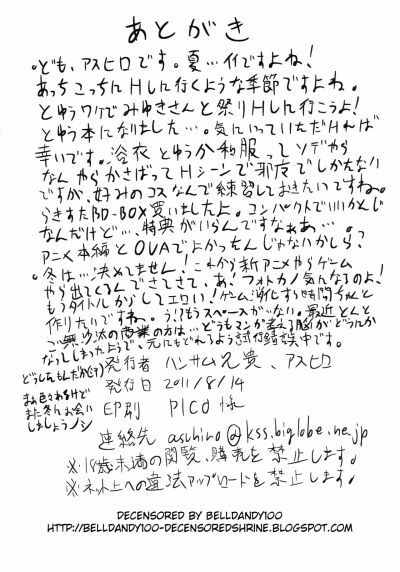 あとがき
・ども、アスヒロです。夏…イイですよね!
あっちこっちにHしに行くような季節ですよね。
とゆうワケでみゆきさんと祭りHしに行こうよ!
とゆう本になりました…。気にいっていただければ
幸いです。浴衣とゆうか和服ってソデやら
なんやらかさばってHシーンで邪魔でしかたない
ですが、好みのコスなんで練習しておきたいですね。
らきすたBD-BOX買いましたよ。コンパクトでいいかんじ
なんだけど…、特典がいらんですなぁぁ…。
アニメ本編とOVAでよかったんじゃないかしら?
・冬は…決めてません!これから新アニメやらゲーム
やら出てくるんでさてさて、あ!フォトカノ気になるのよ!
もうタイトルからしてエロい!ゲーム消化すら
作りたいですね。う!?もうスペースがない。最近とんと
ご無沙汰の商業の方は…どうもマンガ考える脳がどうにか
なってしまったようで、元にもどれるよう試行錯誤中です。
どうしたもんだか(?)
まぁ色々あるけど
また冬にお会い
しましょうノシ
発行者 ハンサム兄貴、アスヒロ
発行日 2011/8/14
印刷 PICO様
連絡先 asuhiro@kss.biglobe.ne.jp
※18歳未満の閲覧、購売を禁止します。
※ネット上への違法アップロードを禁止します。
DECENSORED BY BELLDANDY100
HTTP://BELLDANDY100-DECENSOREDSHRINE.BLOGSPOT.COM